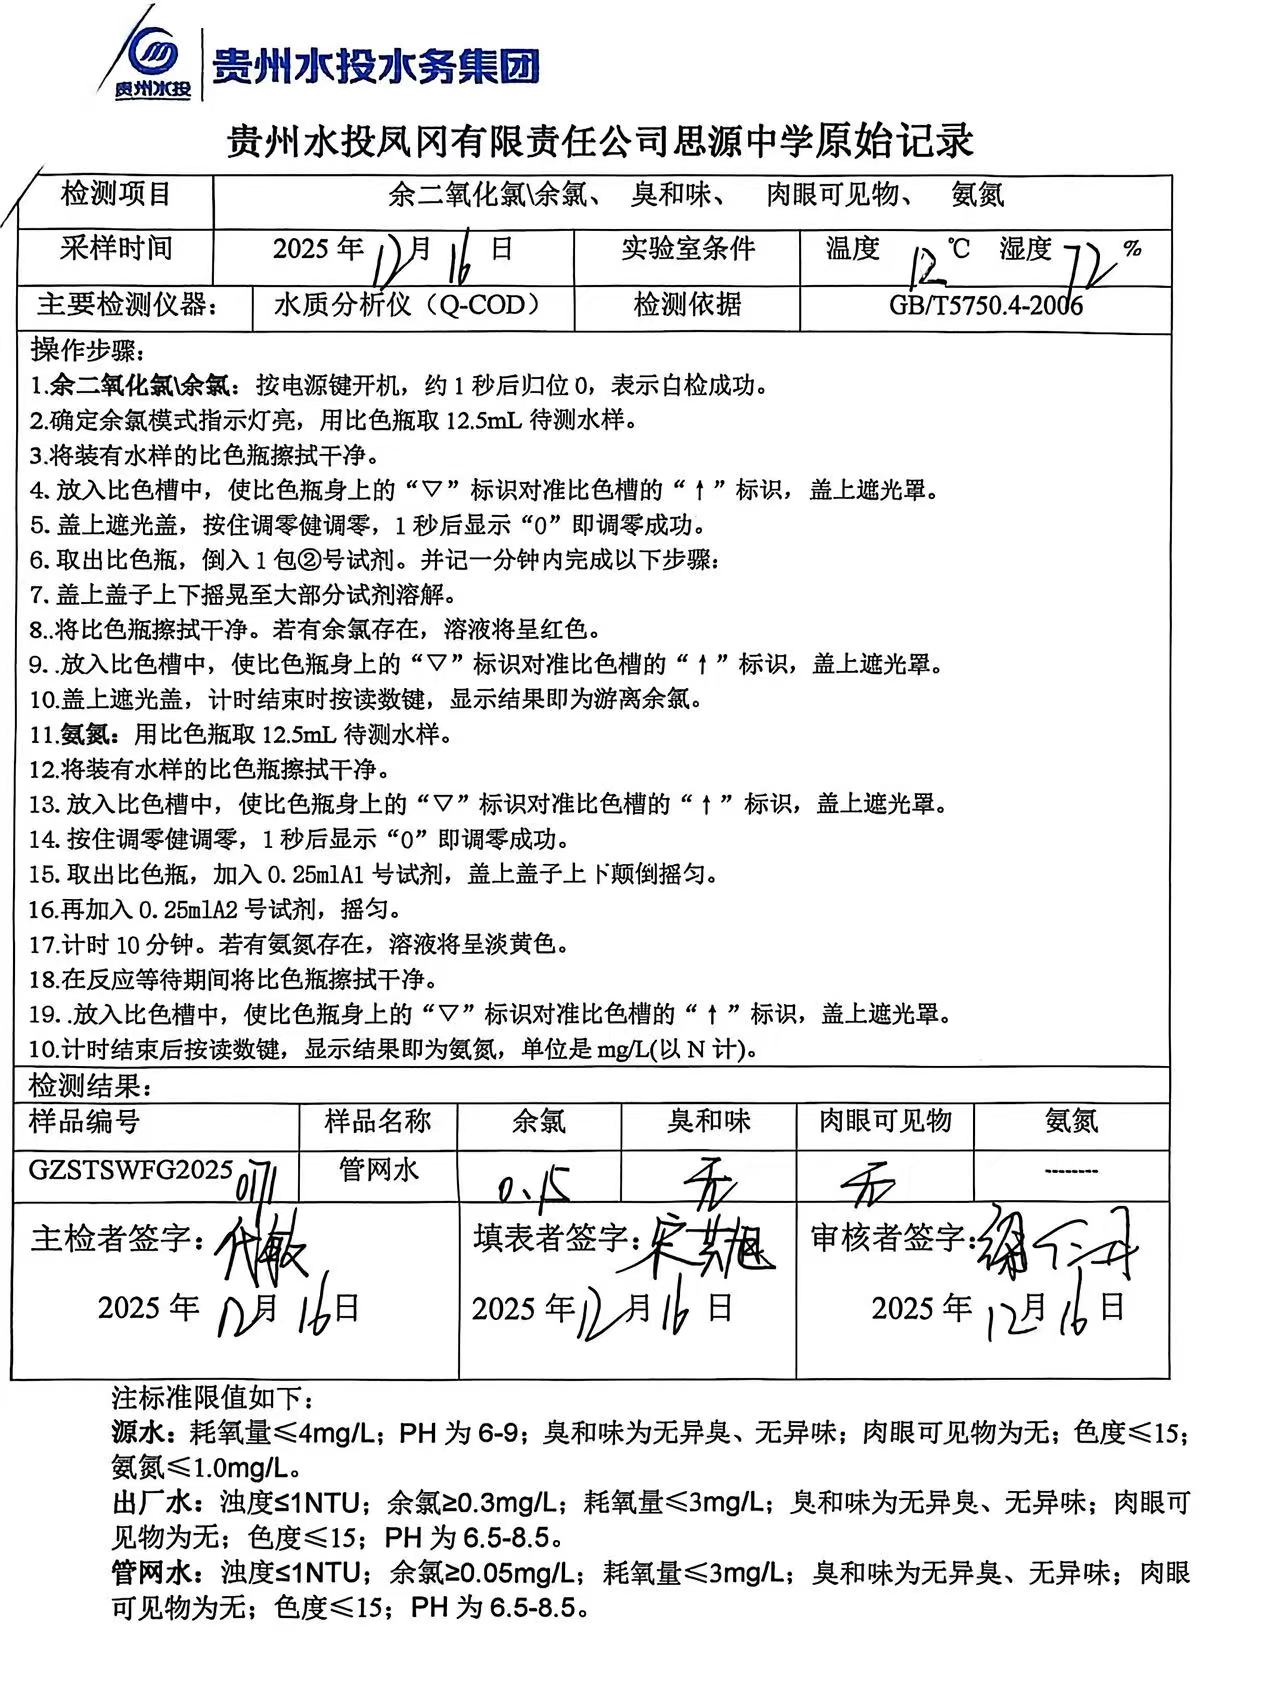 贵州水投
贵州水投水务集团
贵州水投凤冈有限责任公司思源中学原始记录
检测项目 余二氧化氯\余氯、 臭和味、 肉眼可见物、 氨氮
采样时间 2025年12月16日 实验室条件 温度12℃ 湿度72%
主要检测仪器： 水质分析仪（Q-COD） 检测依据 GB/T5750.4-2006
操作步骤：
1.余二氧化氯\余氯：按电源键开机，约1秒后归位0，表示自检成功。
2.确定余氯模式指示灯亮，用比色瓶取12.5mL待测水样。
3.将装有水样的比色瓶擦拭干净。
4.放入比色槽中，使比色瓶身上的“▽”标识对准比色槽的“↑”标识，盖上遮光罩。
5.盖上遮光盖，按住调零健调零，1秒后显示“0”即调零成功。
6.取出比色瓶，倒入1包②号试剂。并记一分钟内完成以下步骤：
7.盖上盖子上下摇晃至大部分试剂溶解。
8..将比色瓶擦拭干净。若有余氯存在，溶液将呈红色。
9. .放入比色槽中，使比色瓶身上的“▽”标识对准比色槽的“↑”标识，盖上遮光罩。
10.盖上遮光盖，计时结束时按读数键，显示结果即为游离余氯。
11.氨氮：用比色瓶取12.5mL待测水样。
12.将装有水样的比色瓶擦拭干净。
13.放入比色槽中，使比色瓶身上的“▽”标识对准比色槽的“↑”标识，盖上遮光罩。
14.按住调零健调零，1秒后显示“0”即调零成功。
15.取出比色瓶，加入0.25mlA1号试剂，盖上盖子上下颠倒摇匀。
16.再加入0.25mlA2号试剂，摇匀。
17.计时10分钟。若有氨氮存在，溶液将呈淡黄色。
18.在反应等待期间将比色瓶擦拭干净。
19. .放入比色槽中，使比色瓶身上的“▽”标识对准比色槽的“↑”标识，盖上遮光罩。
10.计时结束后按读数键，显示结果即为氨氮，单位是mg/L(以N计)。
检测结果：
样品编号 样品名称 余氯 臭和味 肉眼可见物 氨氮
GZSTSWFG20250171 管网水 0.15 无 无 --------
主检者签字：代敏 填表者签字：宋其旭 审核者签字：
2025年12月16日 2025年12月16日 2025年12月16日
注标准限值如下：
源水：耗氧量≤4mg/L；PH为6-9；臭和味为无异臭、无异味；肉眼可见物为无；色度≤15；
氨氮≤1.0mg/L。
出厂水：浊度≤1NTU；余氯≥0.3mg/L；耗氧量≤3mg/L；臭和味为无异臭、无异味；肉眼可
见物为无；色度≤15；PH为6.5-8.5。
管网水：浊度≤1NTU；余氯≥0.05mg/L；耗氧量≤3mg/L；臭和味为无异臭、无异味；肉眼
可见物为无；色度≤15；PH为6.5-8.5。